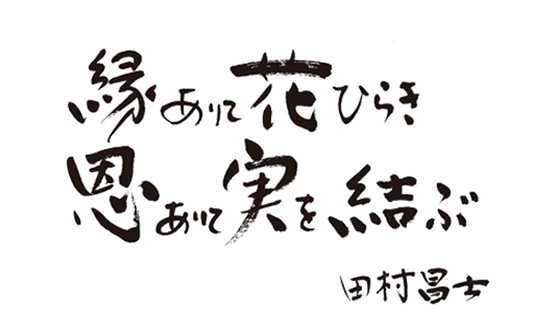 縁ありて花ひらき
恩ありて実を結ぶ
田村昌士